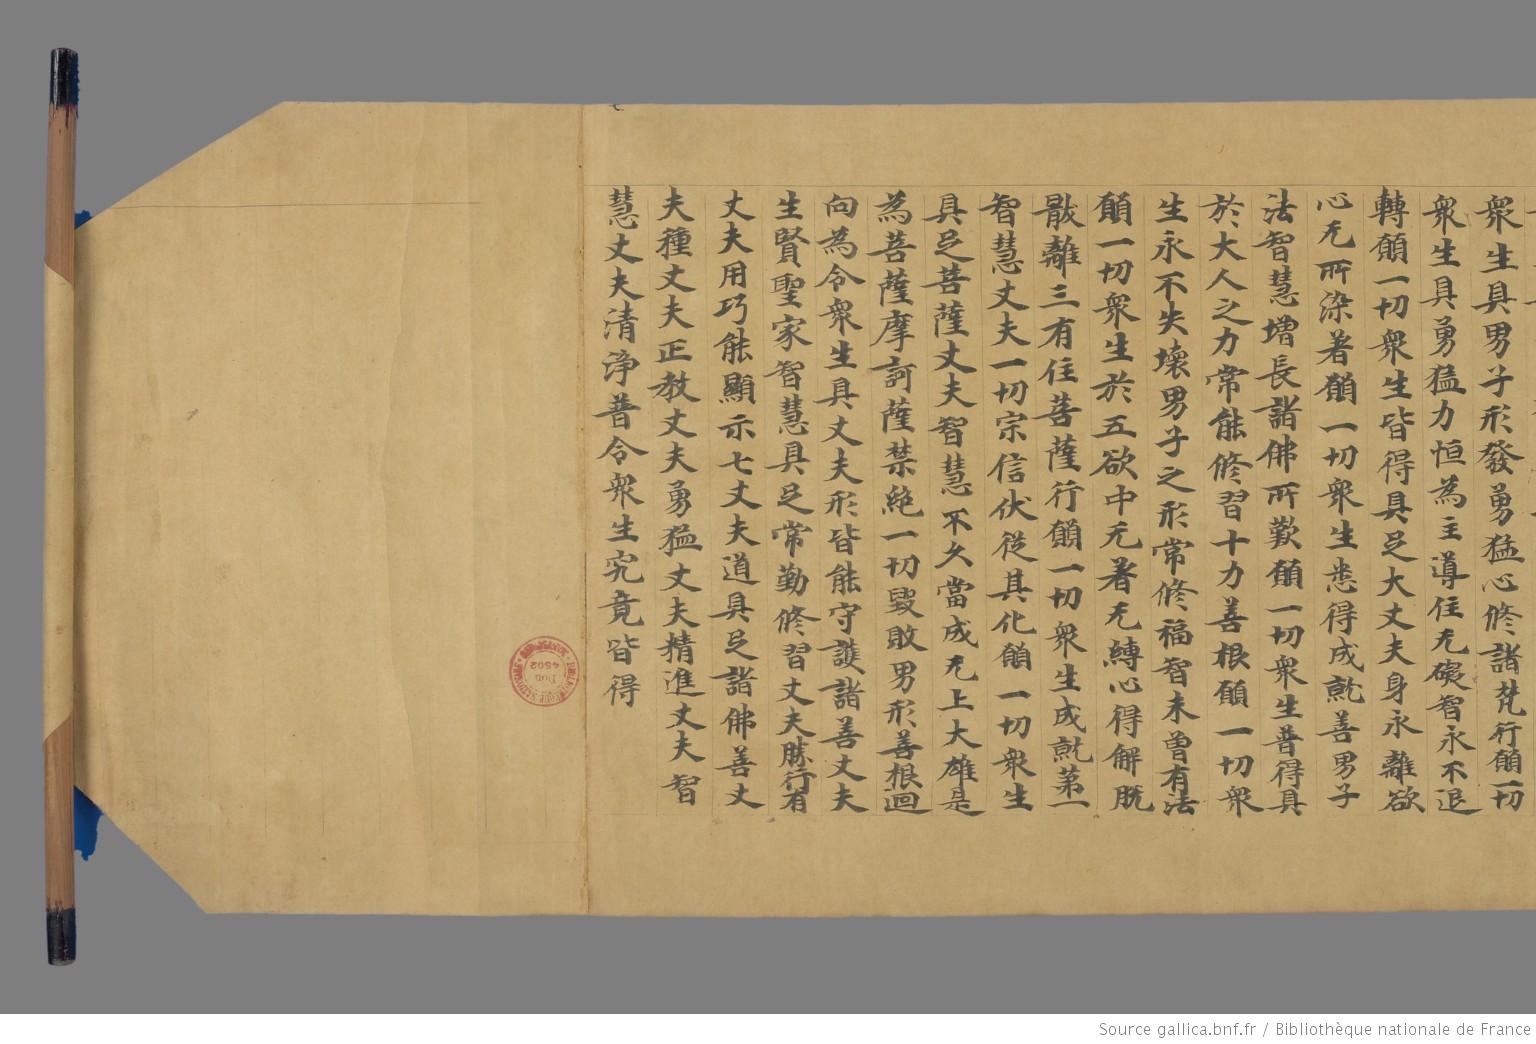 衆生具男子形發勇猛心修諸梵行願一切
衆生具勇猛力恒為主導住无礙智永不退
轉願一切衆生皆得具足大丈夫身永離欲
心无所染著願一切衆生悉得成就善男子
法智慧增長諸佛所歎願一切衆生普得具
於大人之力常能修習十力善根願一切衆
生永不失壞男子之形常修福智未曾有法
願一切衆生於五欲中无著无縛心得解脫
厭離三有住菩薩行願一切衆生成就第一
智慧丈夫一切宗信伏從其化願一切衆生
具足菩薩丈夫智慧不久當成无上大雄是
為菩薩摩訶薩禁絕一切毀敗男形善根迴
向為令衆生具丈夫形皆能守護諸善丈夫
生賢聖家智慧具足常勤修習丈夫勝行有
丈夫用巧能顯示七丈夫道具足諸佛善丈
夫種丈夫正教丈夫勇猛丈夫精進丈夫智
慧丈夫清淨普令衆生究竟皆得
4502
Source gallica.bnf.fr / Bibliothèque nationale de France